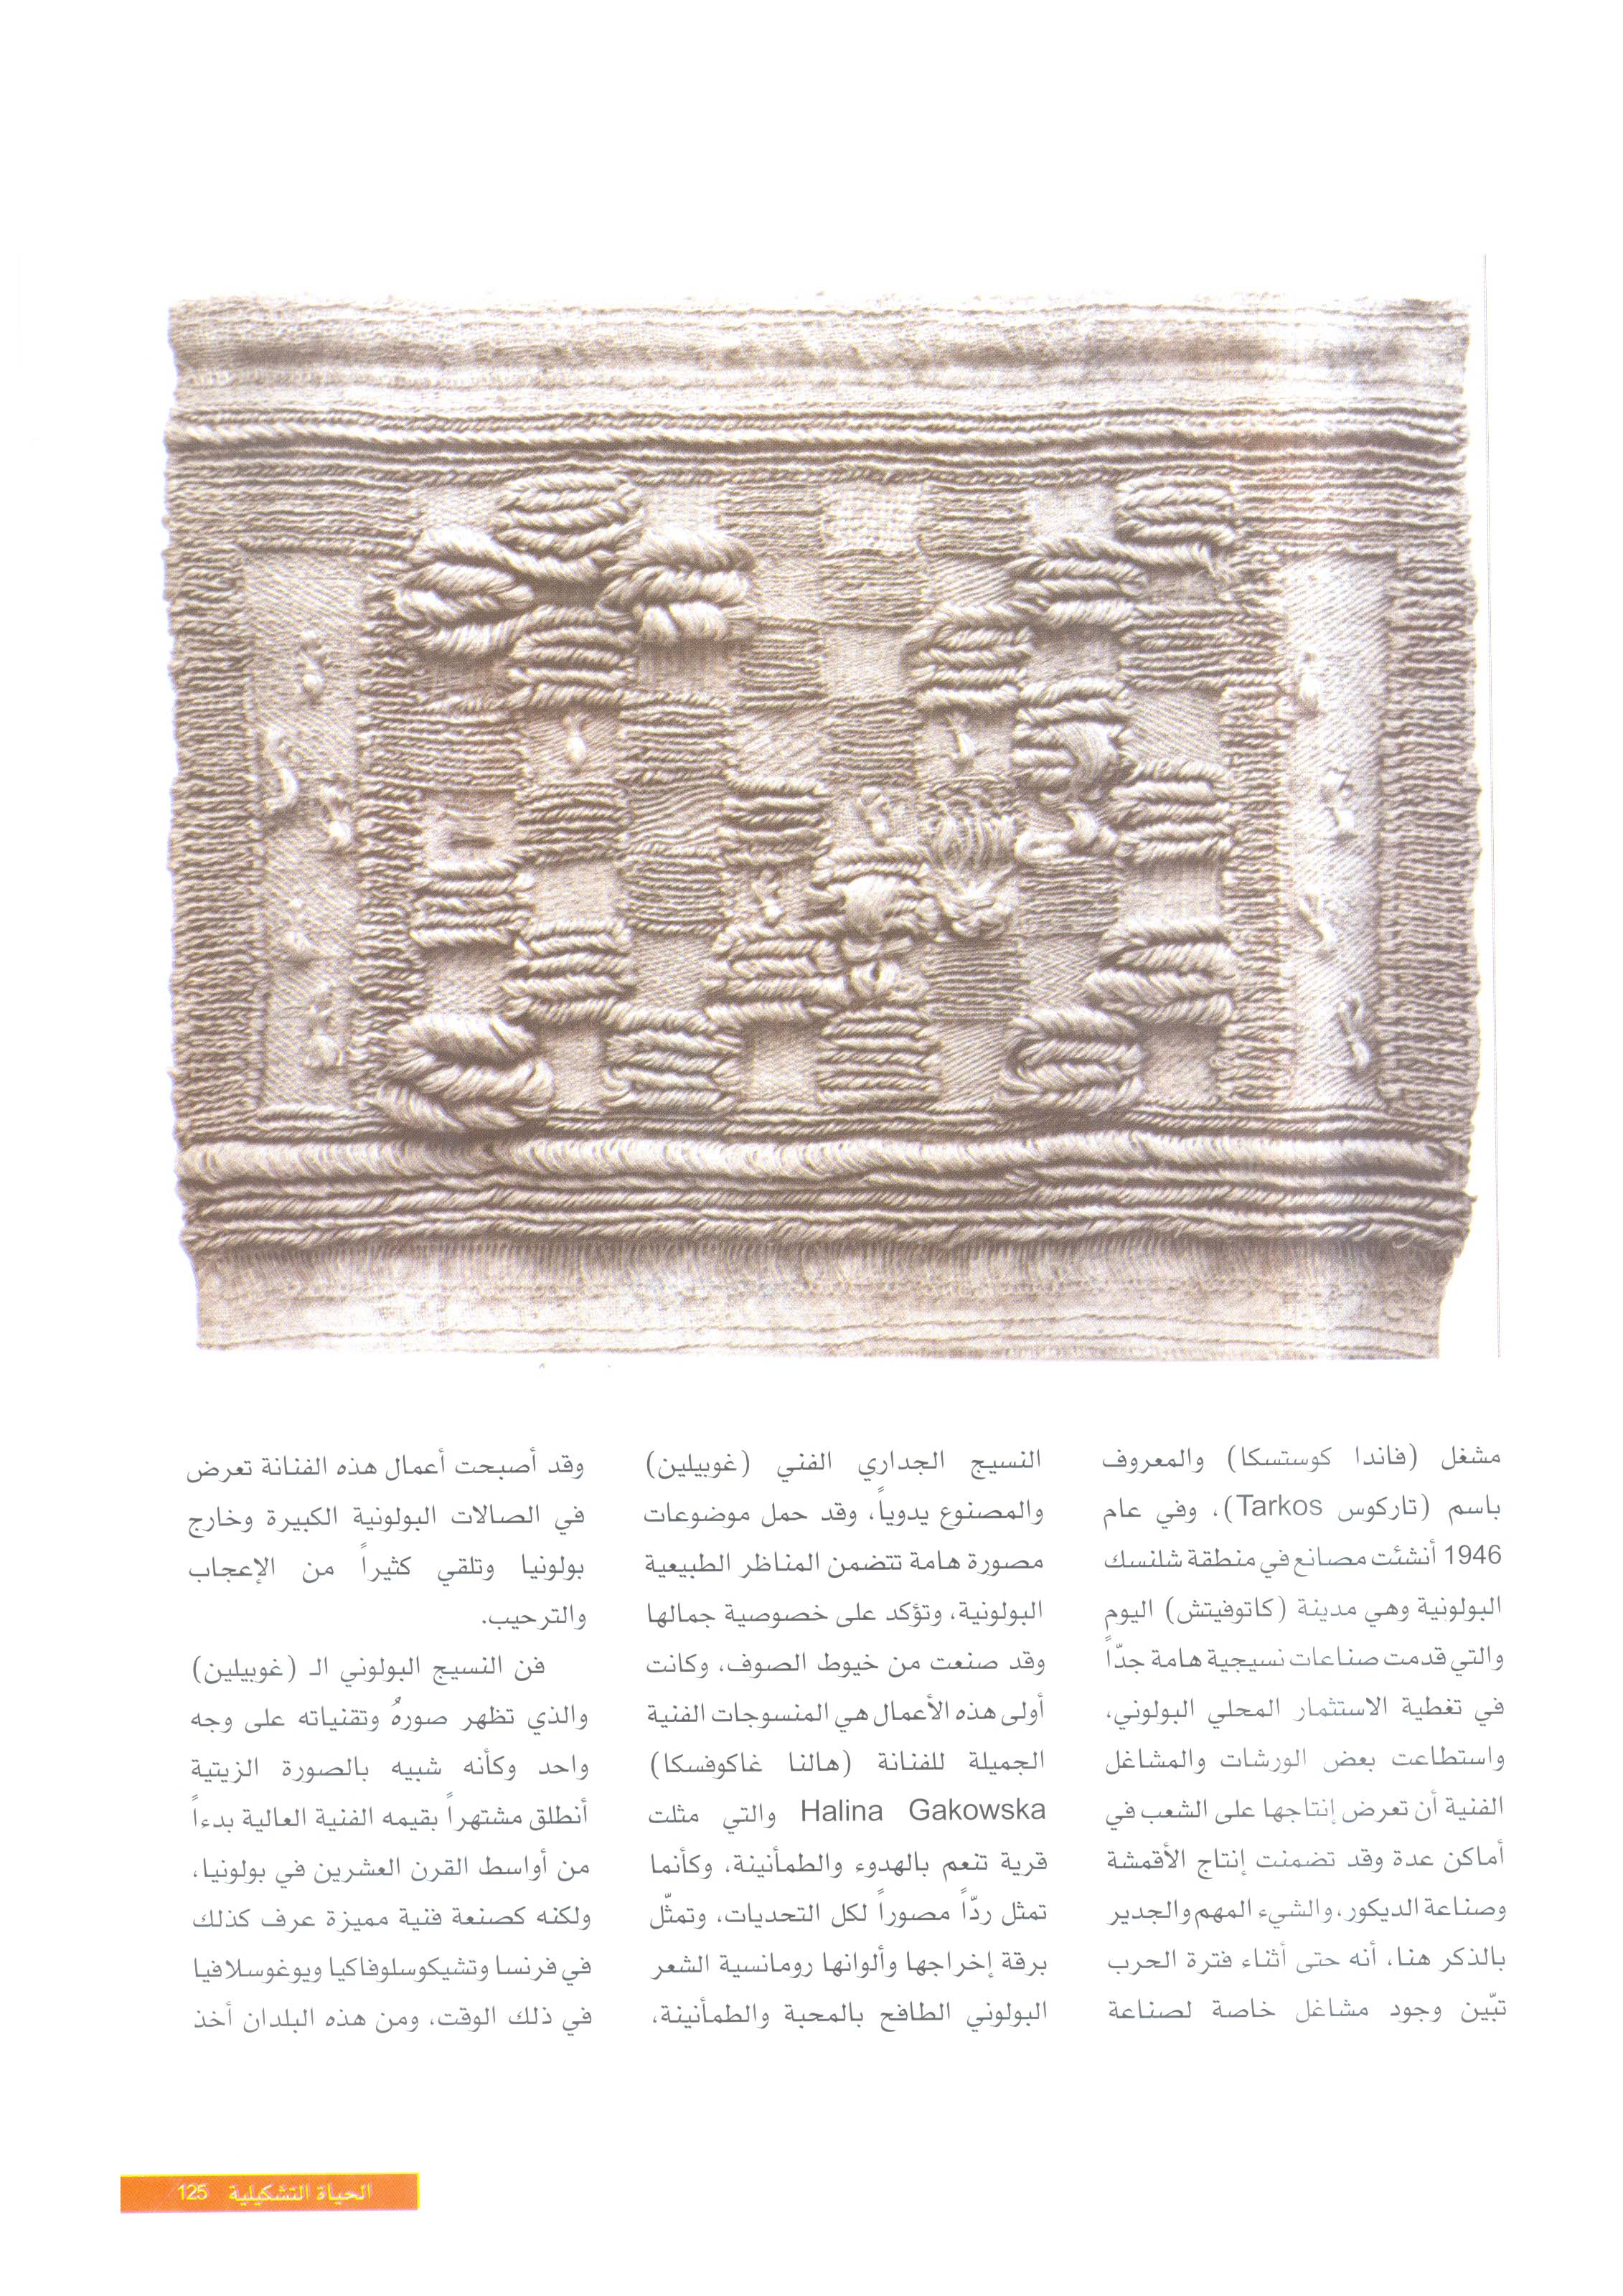 مشغل (فاندا كوستسكا) والمعروف
باسم (تاركوس Tarkos)، وفي عام
1946 أنشئت مصانع في منطقة شلنسك
البولونية وهي مدينة (كاتوفيتش) اليوم
والتي قدمت صناعات نسيجية هامة جدّاً
في تغطية الاستثمار المحلي البولوني،
واستطاعت بعض الورشات والمشاغل
الفنية أن تعرض إنتاجها على الشعب في
أماكن عدة وقد تضمنت إنتاج الأقمشة
وصناعة الديكور، والشيء المهم والجدير
بالذكر هنا، أنه حتى أثناء فترة الحرب
تبّين وجود مشاغل خاصة لصناعة
النسيج الجداري الفني (غوبيلين)
والمصنوع يدوياً، وقد حمل موضوعات
مصورة هامة تتضمن المناظر الطبيعية
البولونية، وتؤكد على خصوصية جمالها
وقد صنعت من خيوط الصوف، وكانت
أولى هذه الأعمال هي المنسوجات الفنية
الجميلة للفنانة (هالنا غاكوفسكا)
Halina Gakowska والتي مثلت
قرية تنعم بالهدوء والطمأنينة، وكأنما
تمثل ردّاً مصوراً لكل التحديات، وتمثّل
برقة إخراجها وألوانها رومانسية الشعر
البولوني الطافح بالمحبة والطمأنينة،
وقد أصبحت أعمال هذه الفنانة تعرض
في الصالات البولونية الكبيرة وخارج
بولونيا وتلقي كثيراً من الإعجاب
والترحيب.
فن النسيج البولوني الـ (غوبيلين)
والذي تظهر صورهُ وتقنياته على وجه
واحد وكأنه شبيه بالصورة الزيتية
أنطلق مشتهراً بقيمه الفنية العالية بدءاً
من أواسط القرن العشرين في بولونيا،
ولكنه كصنعة فنية مميزة عرف كذلك
في فرنسا وتشيكوسلوفاكيا ويوغوسلافيا
في ذلك الوقت، ومن هذه البلدان أخذ
الحياة التشكيلية 125